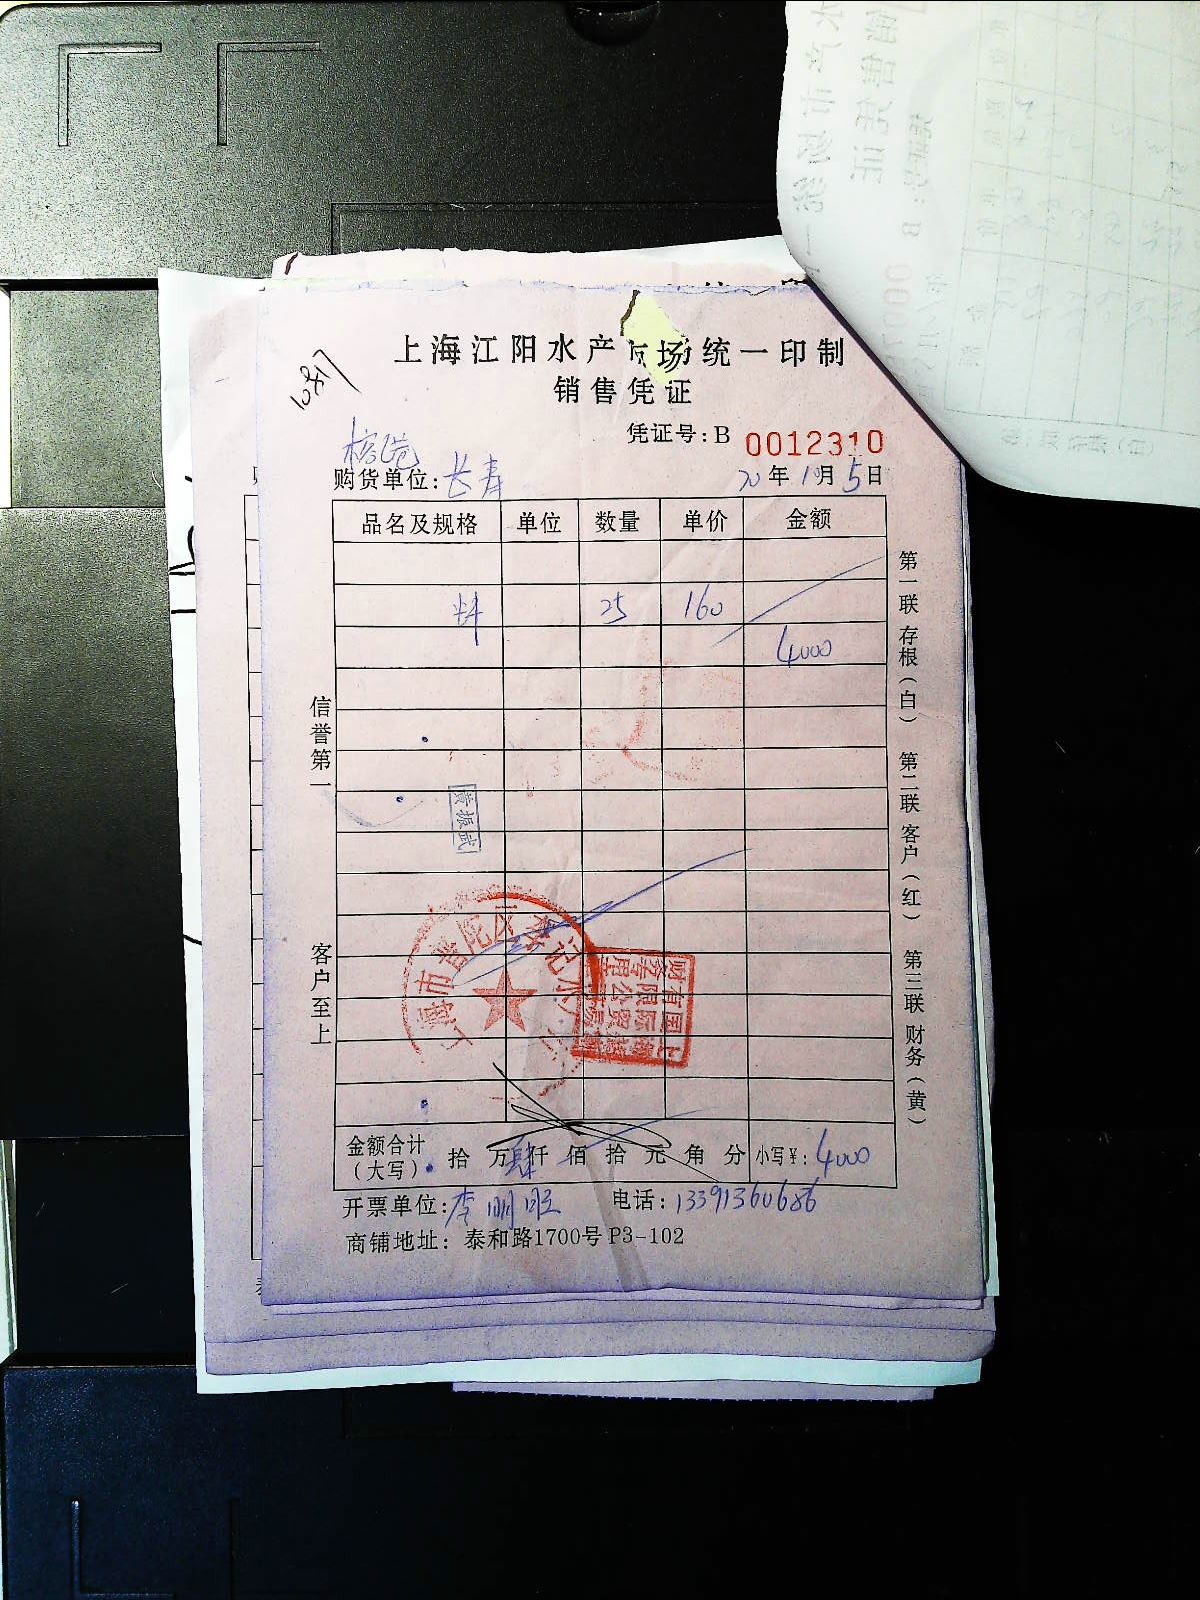 上海江阳水产市场统一印制
销售凭证
凭证号:B 0012310
购货单位:长寿
20年10月5日
品名及规格 单位 数量 单价 金额
料 25 160
4000
信誉第一
客户至上
第一联 存根(白) 第二联 客户(红) 第三联 财务(黄)
黄振武
金额合计(大写) 拾 万肆仟 佰 拾 元 角 分 小写¥:4000
开票单位:李 电话:13391360686
商铺地址: 泰和路1700号 P3-102